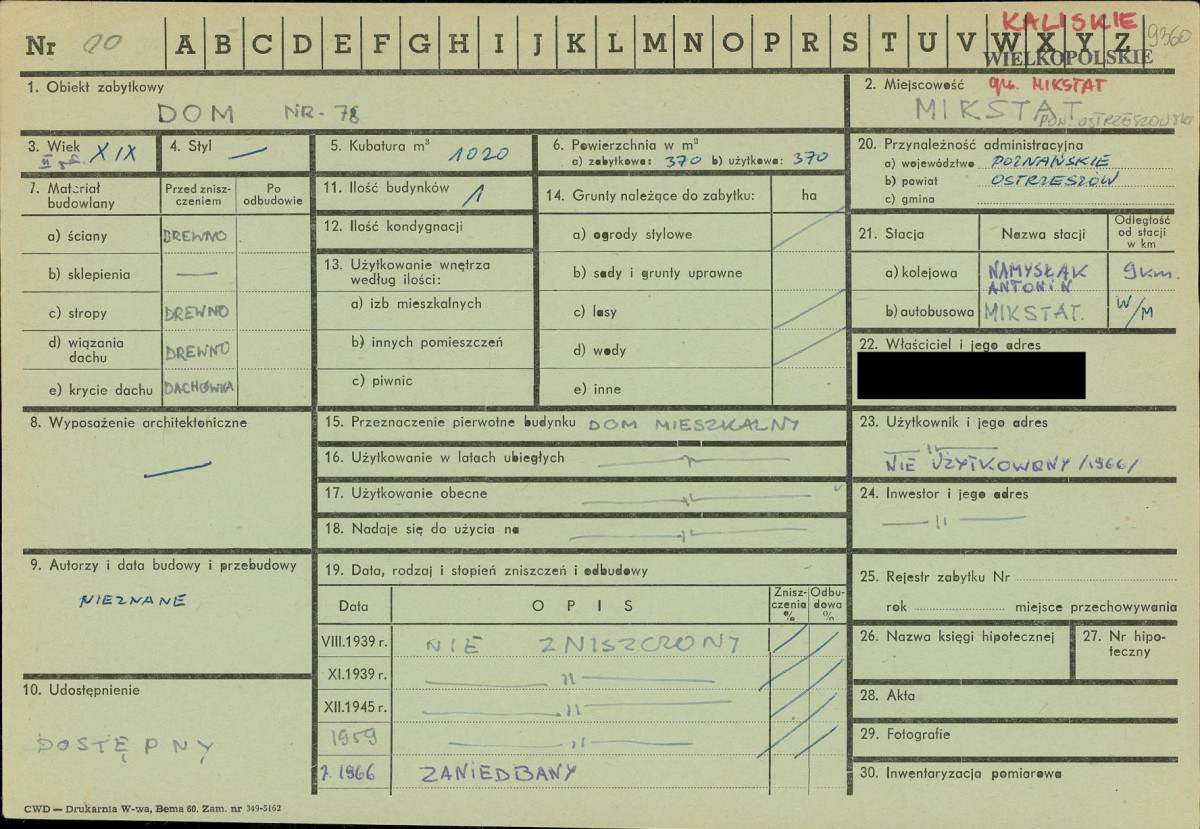 Nr 20 A B C D E F G H I J K L M N O P R S T U V W X Y Z
KALISKIE 9360
WIELKOPOLSKIE
1. Obiekt zabytkowy
DOM NR-78
2. Miejscowość gm. MIKSTAT
MIKSTAT
POW. OSTRZESZOWSKI
3. Wiek XIX
II poł.
4. Styl —
5. Kubatura m³ 1020
6. Powierzchnia w m²
a) zabytkowa: 370 b) użytkowa: 370
20. Przynależność administracyjna
a) województwo POZNAŃSKIE
b) powiat OSTRZESZÓW
c) gmina
7. Materiał budowlany
Przed zniszczeniem
Po odbudowie
a) ściany DREWNO
b) sklepienia —
c) stropy DREWNO
d) wiązania dachu DREWNO
e) krycie dachu DACHÓWKA
11. Ilość budynków 1
12. Ilość kondygnacji
13. Użytkowanie wnętrza
według ilości:
a) izb mieszkalnych
b) innych pomieszczeń
c) piwnic
14. Grunty należące do zabytku: ha
a) ogrody stylowe
b) sady i grunty uprawne
c) lasy
d) wody
e) inne
21. Stacja Nazwa stacji Odległość od stacji w km
a) kolejowa NAMYSŁAK ANTONIN 9km.
b) autobusowa MIKSTAT. W/M
22. Właściciel i jego adres
8. Wyposażenie architektoniczne
—
15. Przeznaczenie pierwotne budynku DOM MIESZKALNY
16. Użytkowanie w latach ubiegłych —"—
17. Użytkowanie obecne —"—
18. Nadaje się do użycia na —"—
23. Użytkownik i jego adres
—"—
NIE UŻYTKOWANY /1966/
24. Inwestor i jego adres
—"—
9. Autorzy i data budowy i przebudowy
NIEZNANE
19. Data, rodzaj i stopień zniszczeń i odbudowy
Data OPIS Zniszczenia % Odbudowa %
VIII.1939 r. NIE ZNISZCZONY
XI.1939 r. —"—
XII.1945 r. —"—
1959 —"—
r. 1966 ZANIEDBANY
25. Rejestr zabytku Nr
rok miejsce przechowywania
26. Nazwa księgi hipotecznej
27. Nr hipoteczny
28. Akta
29. Fotografie
30. Inwentaryzacja pomiarowa
10. Udostępnienie
DOSTĘPNY
CWD — Drukarnia W-wa, Bema 60. Zam. nr 349-5162